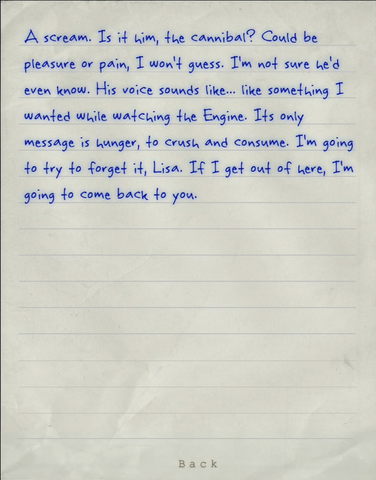 A scream. Is it him, the cannibal? Could be
pleasure or pain, I won't guess. I'm not sure he'd
even know. His voice sounds like... like something I
wanted while watching the Engine. Its only
message is hunger, to crush and consume. I'm going
to try to forget it, Lisa. If I get out of here, I'm
going to come back to you.
Back